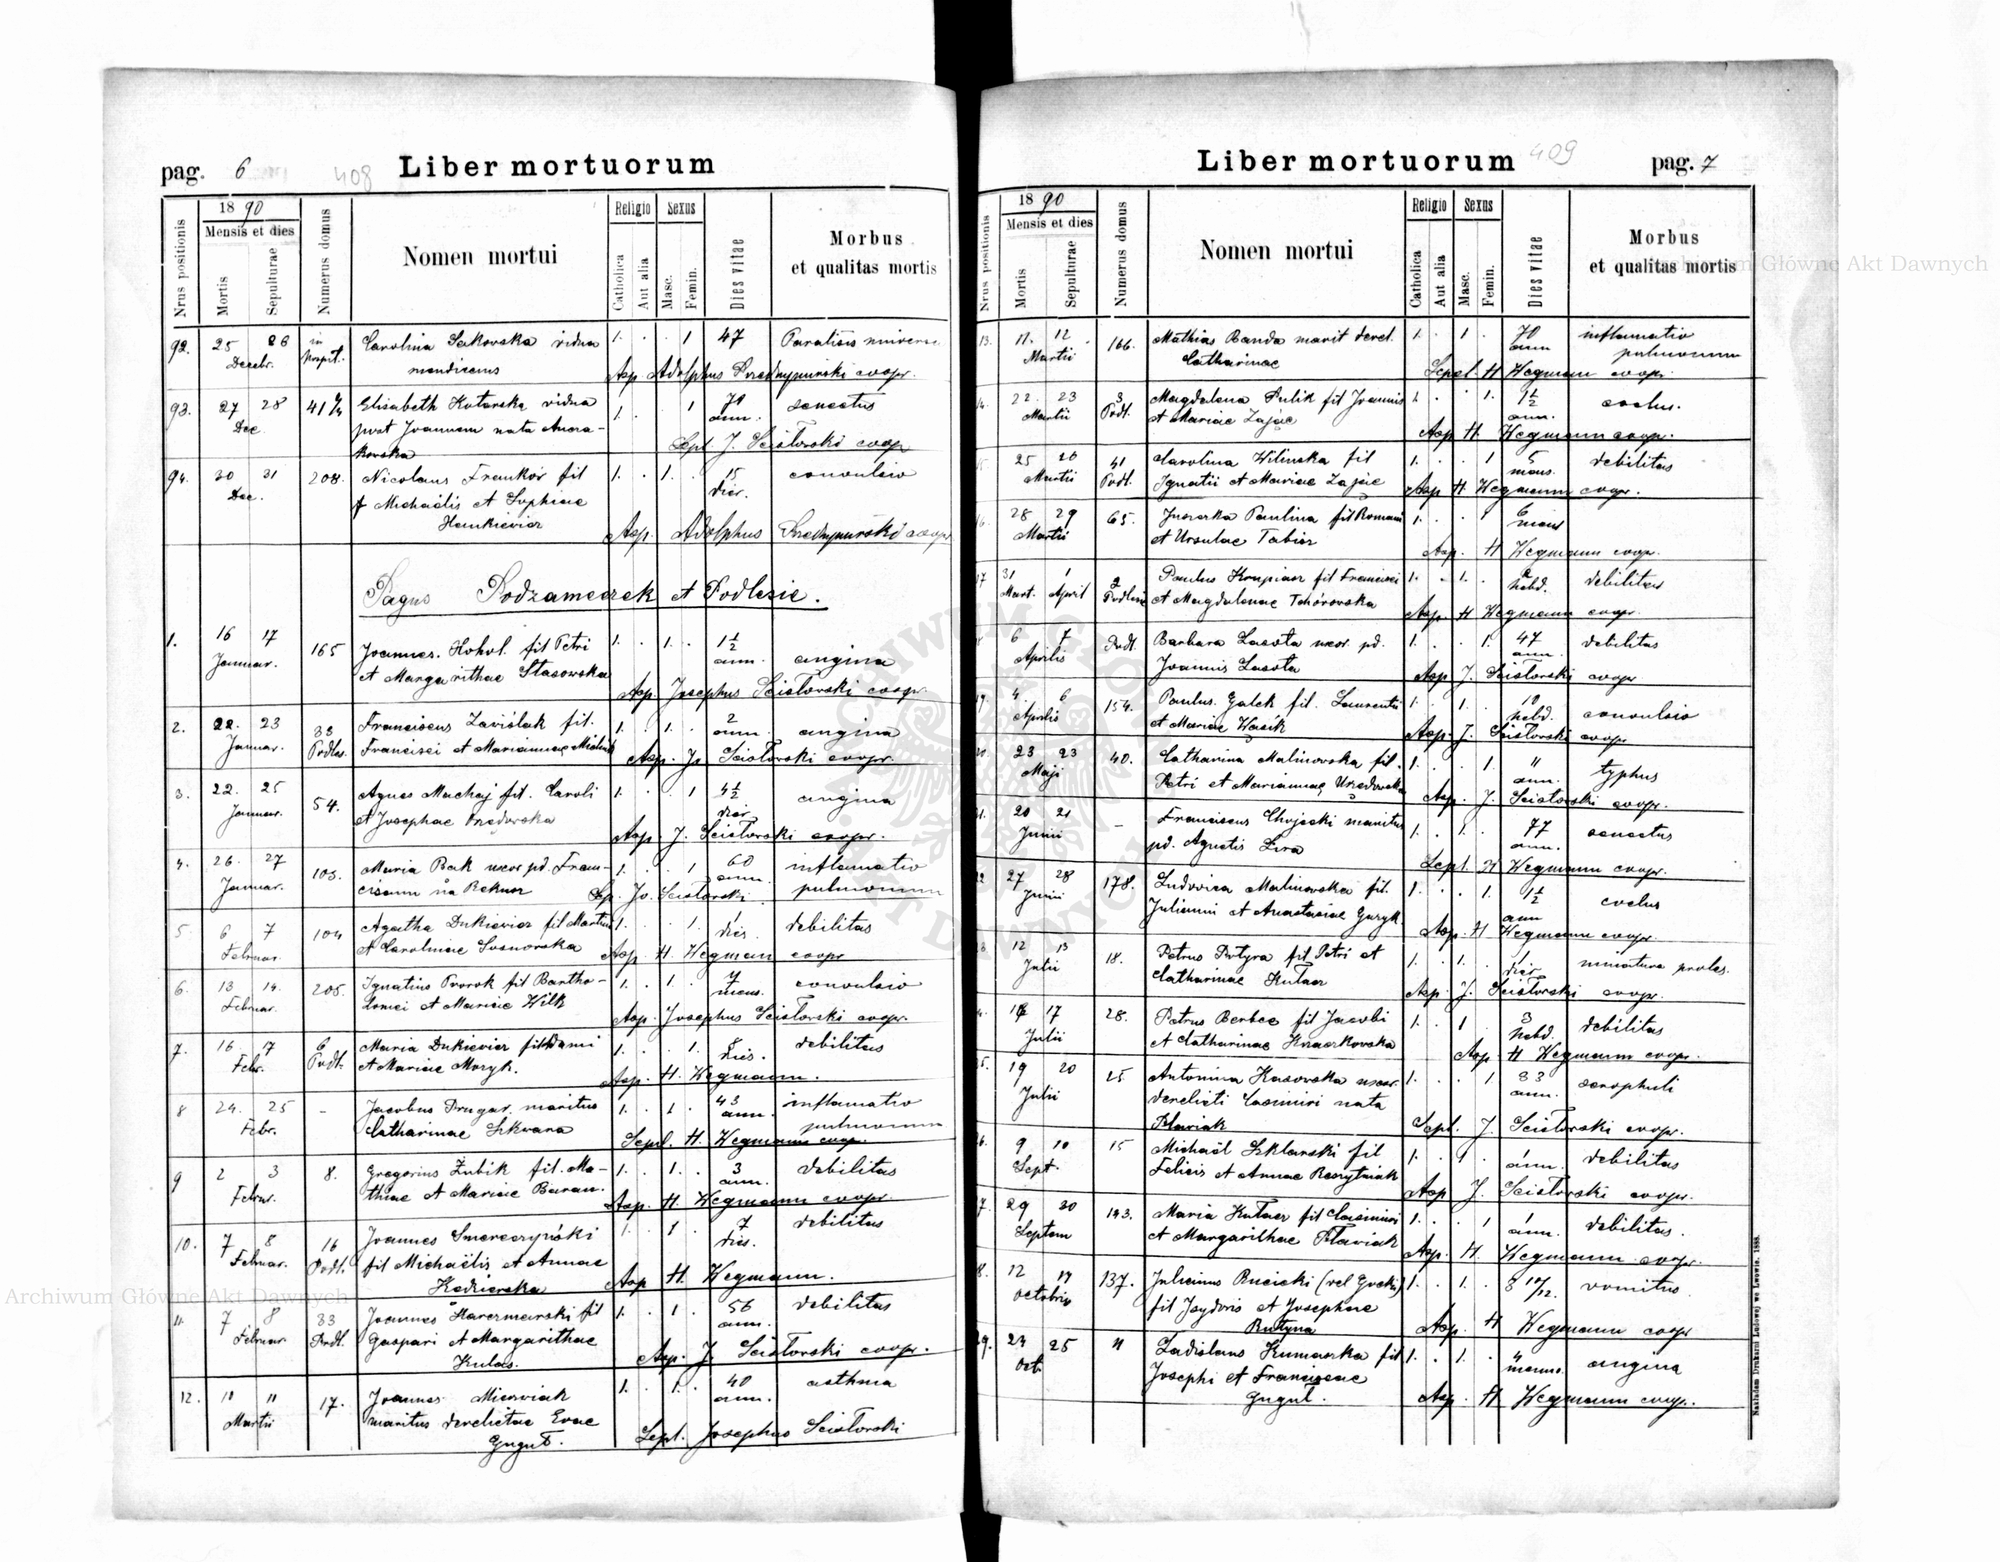 pag. 6
408
Liber mortuorum
Nrus positionis
1890
Mensis et dies
Mortis
Sepulturae
Numerus domus
Nomen mortui
Religio
Catholica
Aut alia
Sexus
Masc.
Femin.
Dies vitae
Morbus
et qualitas mortis
92. 25 26 in Carolina Sakowska vidua 1. . . 1 47 Paralisis
Decebr. hospit. mendicans
Asp. Adolphus coopr.
93. 27 28 41 Elisabeth Kotarska vidua 1. 1 70 senectus
Dec post Joannem nata ann.
Sept J. Scisłowski coop
94. 30 31 208. Nicolaus fil 1. . 1. . 15 convulsio
Dec. Michaëlis et Sophiae dier.
Asp. Adolphus coopr
Pagus Podzameczek et Podlesie.
1. 16 17 165 Joannes Hohol fil Petri 1. . 1. . 1½ angina
Januar. et Margarithae Stasowska ann.
Asp. Josephus Scisłowski coopr.
2. 22. 23 33 Franciscus Zaviślak fil. 1. . 1. . 2 angina
Januar. Podles. Francisci et Mariannae ann.
Asp. J. Scisłowski coopr.
3. 22. 25 54. Agnes Machaj fil. Caroli 1. . . 1 4½ angina
Januar. et Josephae dier.
Asp. J. Scisłowski coopr.
4. 26. 27 103. Maria Bak uxor pd. Fran- 1. . . 1 60 inflamatio
Januar. ciscum ann. pulmonum
Jo. Scisłowski
5. 6 7 104 Agatha Dukiewicz fil Martini 1. . . 1. 1 debilitas
Februar. et Carolinae Sosnowska dies.
Asp. H. Wegman coopr
6. 13 14. 205. Ignatius Pworok fil Bartho- 1. . 1. 7 convulsio
Februar. lomei et Mariae Wilk mens.
Asp. Josephus Scisłowski coopr.
7. 16. 17 6 Maria Dukiewicz fil Adami 1. . . 1. debilitas
Febr. Podl. et Mariae Moryk. dies.
Asp. H. Wegmann.
8 24. 25 - Jacobus Drugar. maritus 1. . 1. . 43 inflamatio
Febr. Catharinae Szkwara ann. pulmonum
Sepul. H. Wegmann coopr.
9 2 3 8. Gregorius Zubik fil. Ma- 1. . 1. . 3 debilitas
Febru. thiae et Mariae Baran. ann.
Asp. H. Wegmann coopr
10. 7 8 16 Joannes 1. . 1 7 debilitas
Februar. Podl. fil Michaëlis et Annae dies.
Kedzierska Asp H. Wegmann.
11. 7 8 33 Joannes Karczmarski fil 1. . 1 . 56 debilitas
Februar Podl. Gaspari et Margarithae ann.
Kulas. Asp. J. Scisłowski coopr.
12. 10 11 17. Joannes 1. . 1. . 40 asthma
Martii maritus derelictae Evae ann.
Guguł. Sept. Josephus Scisłowski
Liber mortuorum
409
pag. 7
Nrus positionis
1890
Mensis et dies
Mortis
Sepulturae
Numerus domus
Nomen mortui
Religio
Catholica
Aut alia
Sexus
Masc.
Femin.
Dies vitae
Morbus
et qualitas mortis
13. 11. 12 166. Mathias Banda marit derel. 1. . 1 . 70 inflamatio
Martii Catharinae ann pulmonum
Sepel. H Wegmann coopr.
14. 22 23 3 Magdalena Pulik fil Joannis 1. . . 1. 1½
Martii Podl. et Mariae Zając ann.
Asp H. Wegmann coopr.
15 25 26 41 Carolina Wilinska fil 1. . . 1 5 debilitas
Martii Podl. Ignatii et Mariae Zając mens.
Asp H. Wegmann coopr.
16. 28 29 65. Paulina fil Romani 1. . . 1 6
Martii et Ursulae Tabisz mens
Asp. H Wegmann coopr.
17 31 1 2 Paulus Krupiasz fil Francisci 1. - 1. . debilitas
Mart. April Podlesie et Magdalenae Tchórowska hebd.
Asp. H Wegmann coopr.
18 6 7 Podl. Barbara Lasota uxor pd. 1. . . 1. 47 debilitas
Aprilis Joannis Lasota ann.
Asp J. Scisłowski coopr
19. 4 6 154. Paulus Galek fil. Laurentii 1. . 1. . 10 convulsio
Aprilis et Mariae Wasik hebd.
Asp. J. Scisłowski coopr
20. 23 23 40. Catharina Malinowska fil. 1. . . 1. 11 typhus
Maji Petri et Mariannae ann.
Asp. J. Scisłowski coopr.
21. 20 21 - Franciscus Chojecki maritus 1. . 1. . 77 senectus
Junii pd. Agnetis Zura ann.
Sepl. H Wegmann coopr.
22 27 28 178. Ludovica Malinowska fil. 1. . . 1. 1½
Junii Juliani et Anastasiae Guzyk. ann
Asp. H Wegmann coopr.
23. 12 13 18. Petrus Putyra fil Petri et 1. . 1. . 1
Julii Catharinae Kutasz dier
Asp. J. Scisłowski coopr.
24. 16 17 28. Petrus Berbec fil Jacobi 1. . 1 . 3 debilitas
Julii et Catharinae hebd.
Asp H Wegmann coopr.
25. 19 20 25. Antonina Kasowska uxor 1. . . 1. 33 scrophuli
Julii derelicti Casimiri nata ann.
Pławiak Sepl. J. Scisłowski coopr.
26. 9 10 15 Michaël Szklarski fil 1. . 1 . 1 debilitas
Sept. Felicis et Annae ann.
Asp J. Scisłowski coopr.
27. 29 30 143. Maria Kutasz fil Casimiri 1. . . 1 1 debilitas.
Septem et Margarithae Pławiak ann.
Asp. H. Wegmann coopr
28. 12 14 137. Julianus Rucicki (vel Gocki) 1. . 1. . 8 10/12. vomitus.
Octobris fil Isydoris et Josephae
Rutyna Asp. H Wegmann coopr
29. 24 25 11 Ladislaus Kumaszka fil 1. . 1. . 4 angina
Oct. Josephi et Franciscae mens.
Gugul. Asp H Wegmann coop.
Nakładem Drukarni Ludowej we Lwowie. 1888.
Archiwum Główne Akt Dawnych
Archiwum Główne Akt Dawnych
ARCHIWUM GŁÓWNE AKT DAWNYCH